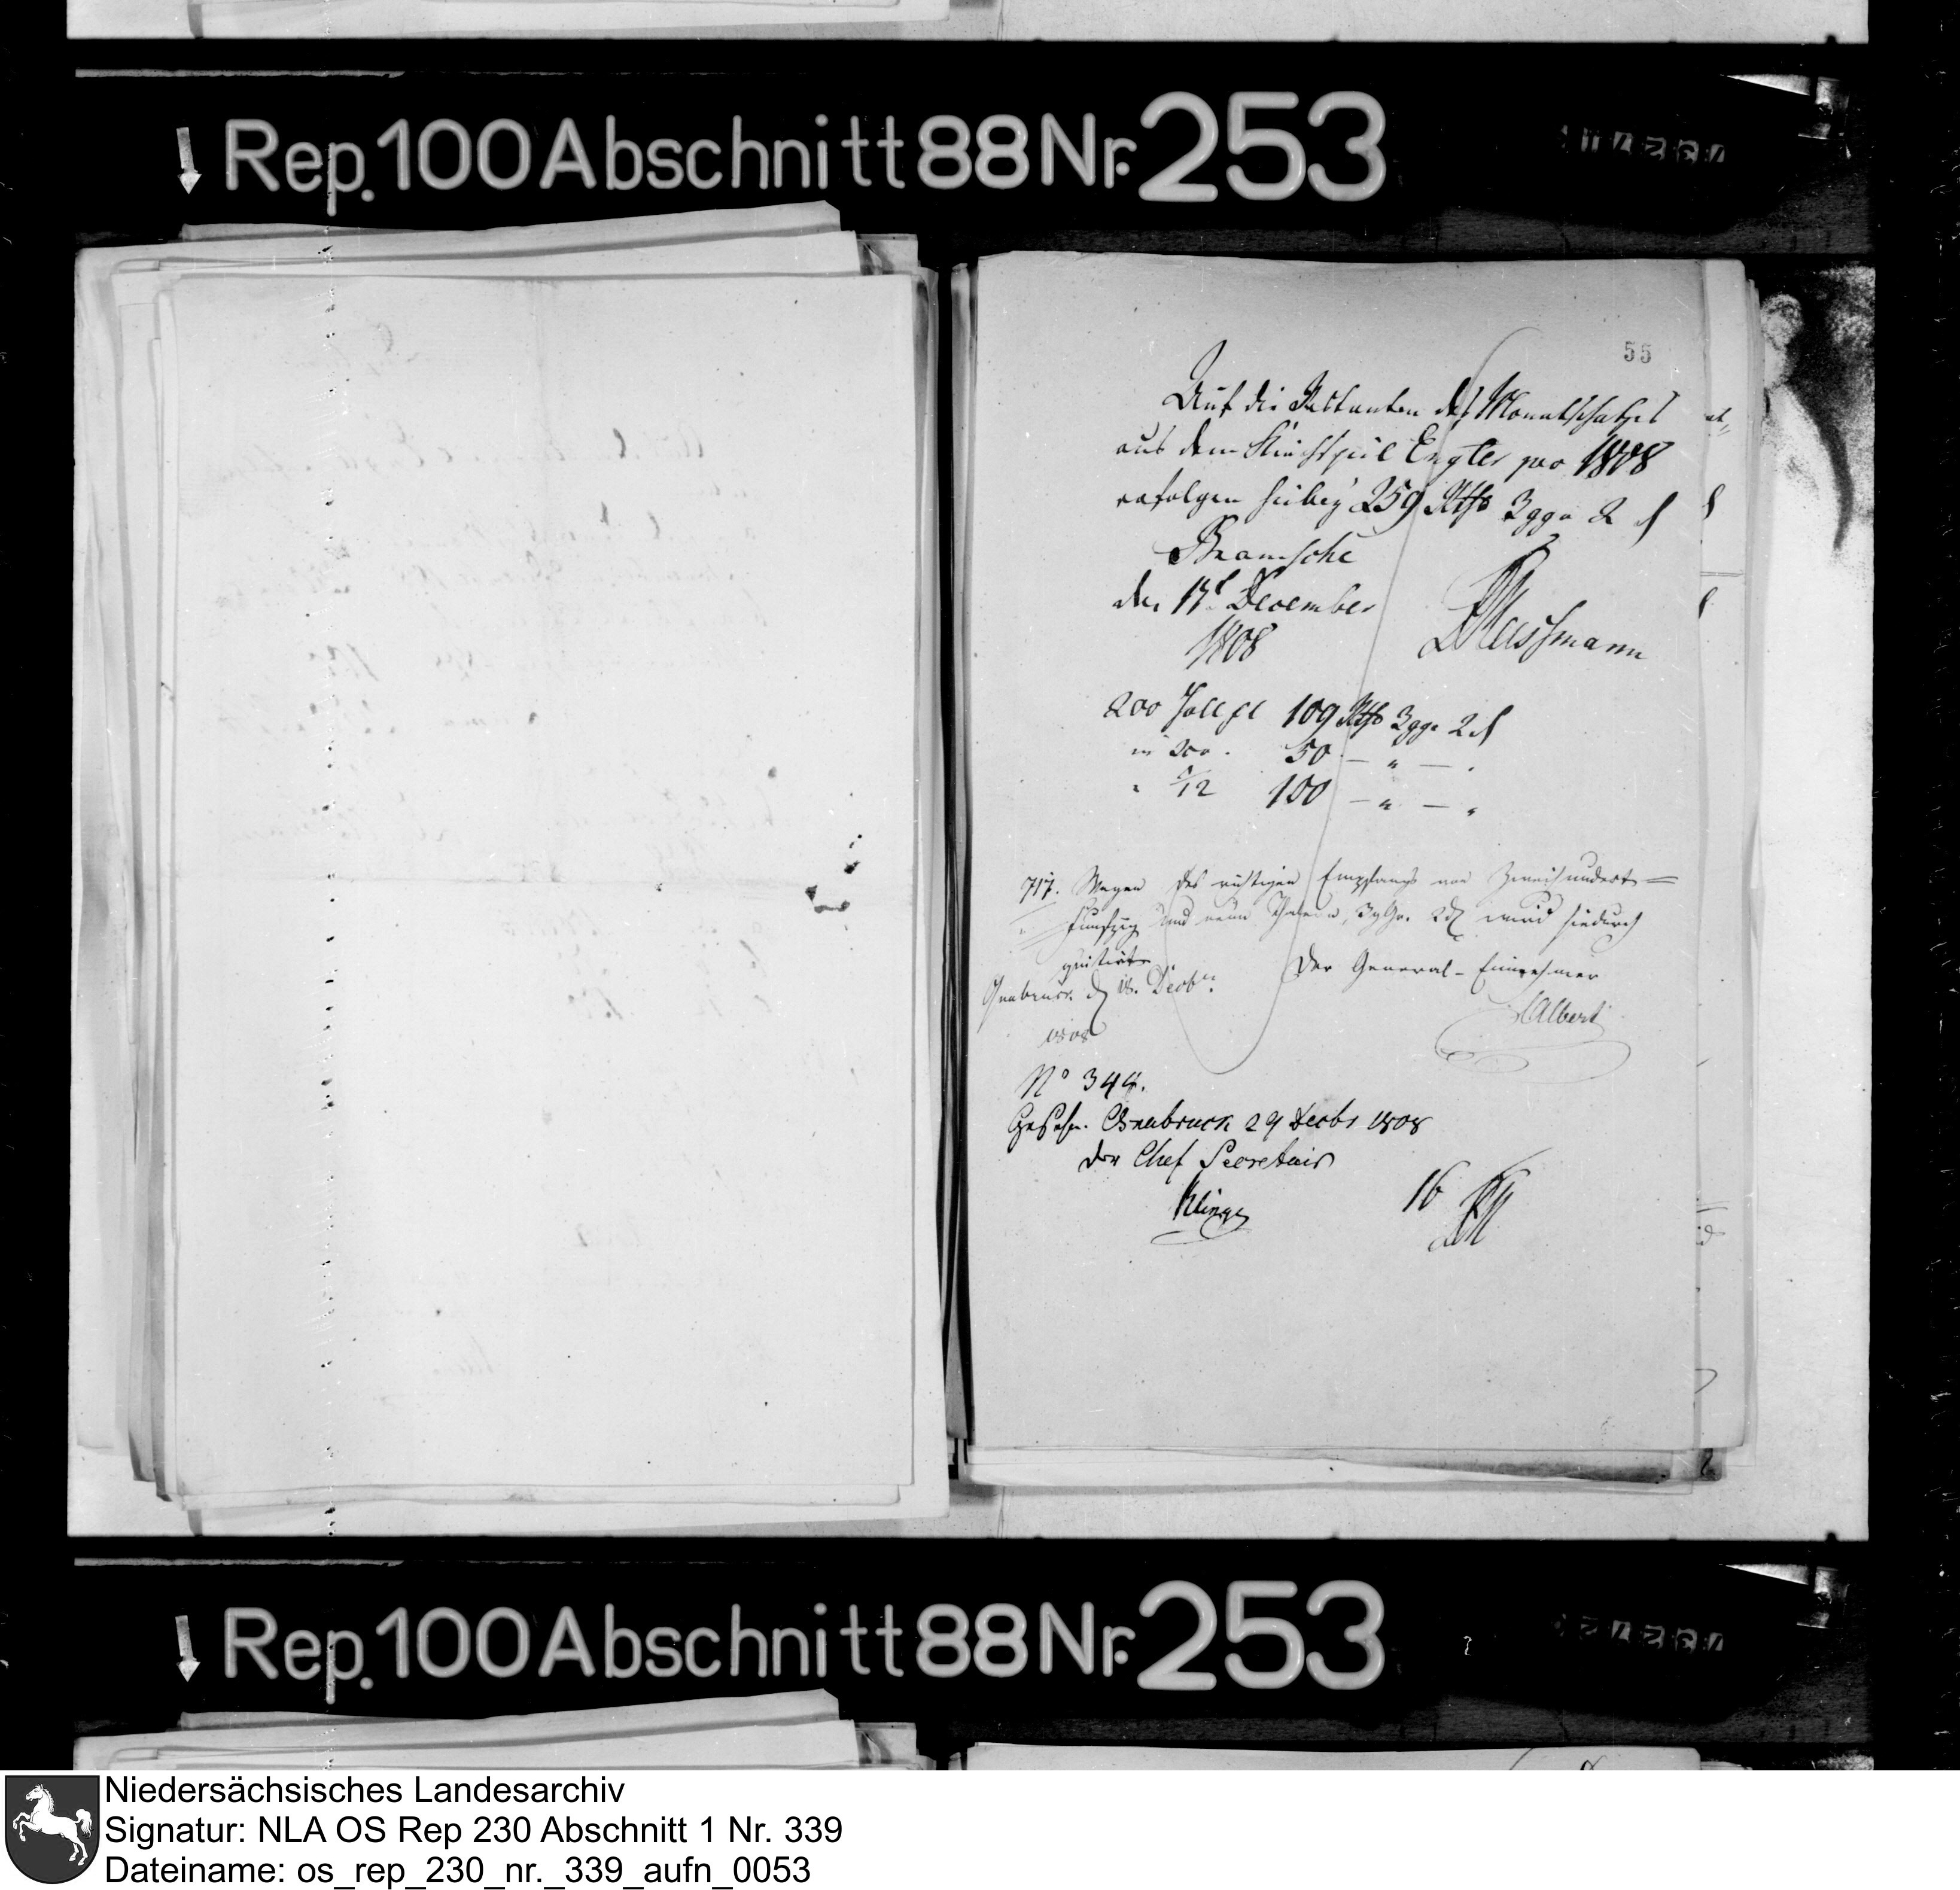 Rep. 100 Abschnitt 88 Nr. 253
55
Auf die Restanten des Monatschatzes
aus dem Kirchspiel Engter pro 1808
erfolgen hiebey 259 Rthr 3 ggr 2 d
Bramsche
den 17t December
1808
200 Holl fl 109 Rthr 3 ggr 2 d
in 50 — " — "
" 1/12 100 — " — "
717. Wegen des richtigen Empfangs von Zweihundert=
Funfzig und neun Thaler, 3 gGr. 2 d wird hiedurch
quitirt
Osnabruck d 18. Decbr.
1808
Der General-Einnehmer
Alberti
No 344.
Gesehn. Osnabruck 29 Decbr 1808
der Chef Secretair
Klinge
16
Rep. 100 Abschnitt 88 Nr. 253
Niedersächsisches Landesarchiv
Signatur: NLA OS Rep 230 Abschnitt 1 Nr. 339
Dateiname: os_rep_230_nr._339_aufn_0053